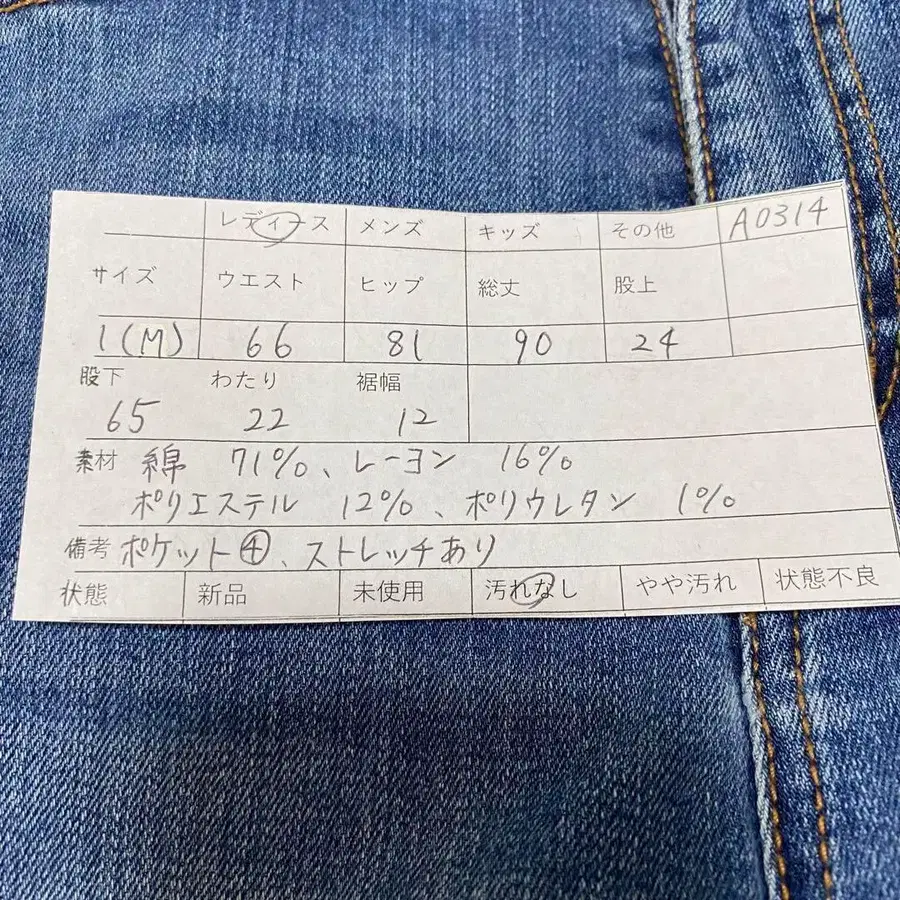 レディース メンズ キッズ その他 A0314
サイズ ウエスト ヒップ 総丈 股上
1(M) 66 81 90 24
股下 わたり 裾幅
65 22 12
素材 綿 71%、レーヨン 16%
ポリエステル 12%、ポリウレタン 1%
備考 ポケット④、ストレッチあり
状態 新品 未使用 汚れなし やや汚れ 状態不良